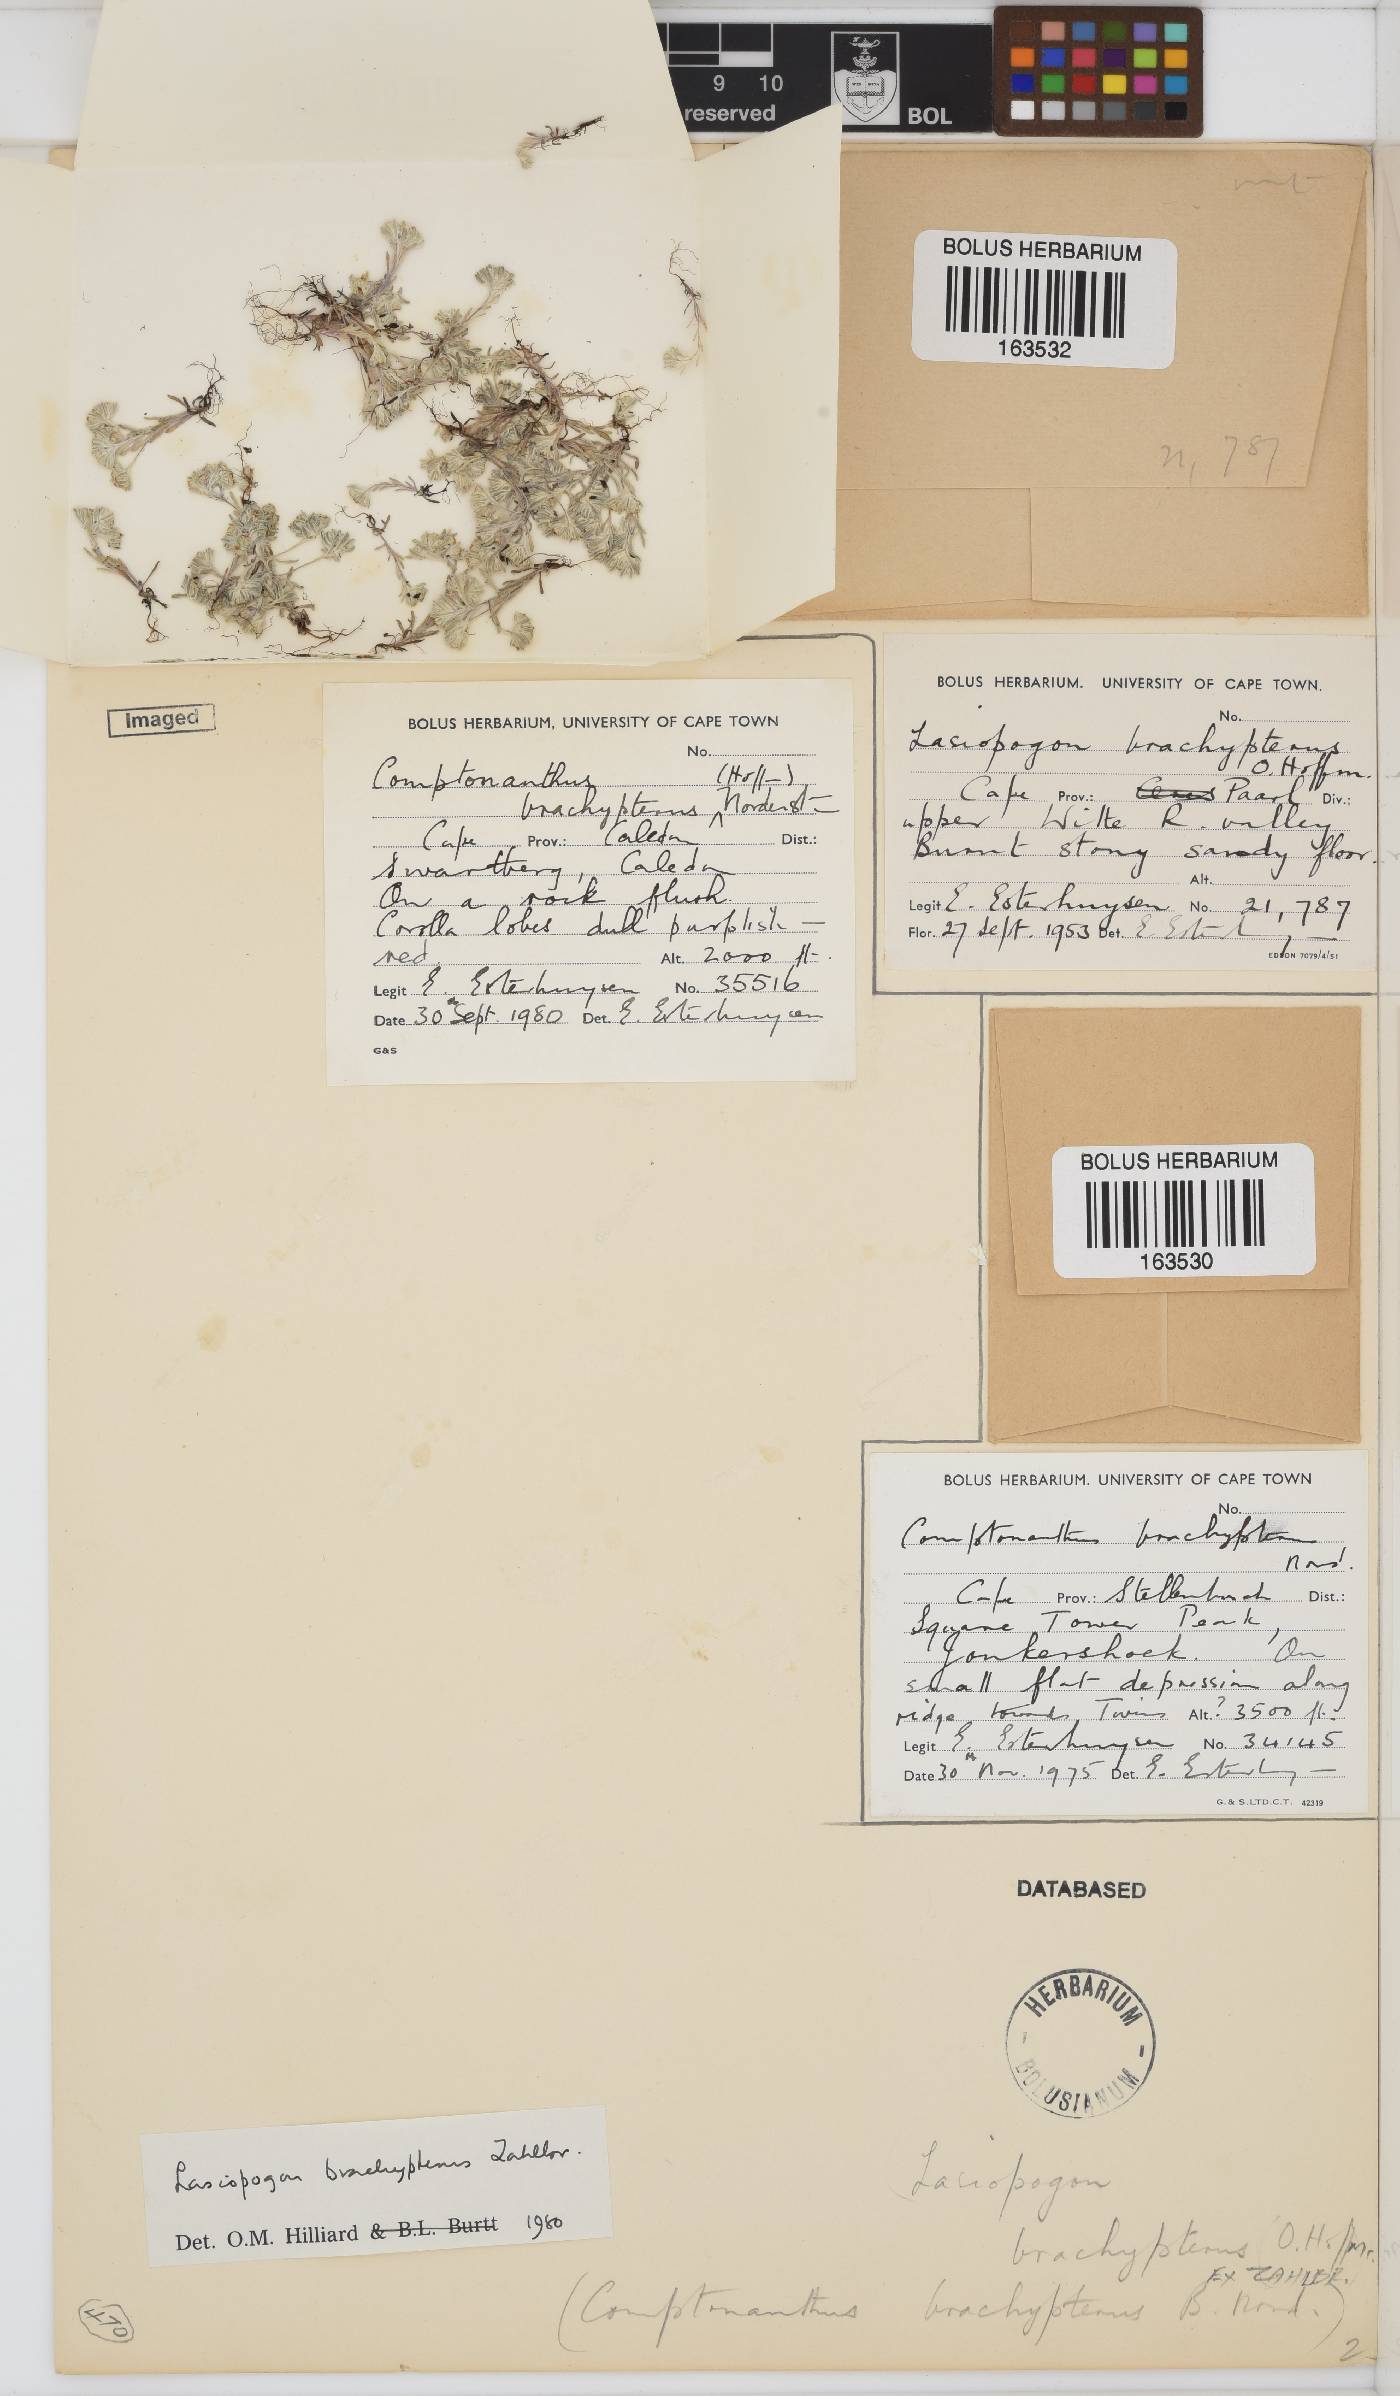 9 10
reserved
BOL
BOLUS HERBARIUM
163532
n, 787
Imaged
BOLUS HERBARIUM, UNIVERSITY OF CAPE TOWN
No.
Comptonanthus (Hoff—)
brachypterus ^ Nordenst—
Cape Prov.: Caledon Dist.:
Swartberg, Caledon
On a rock flush.
Corolla lobes dull purplish—
red. Alt. 2000 ft.
Legit E. Esterhuysen No. 35516
Date 30th Sept. 1980 Det. E. Esterhuysen
G&S
BOLUS HERBARIUM. UNIVERSITY OF CAPE TOWN.
No.
Lasiopogon brachypterus
O. Hoffm.
Cape Prov.: Ceres Paarl Div.:
upper Witte R. valley
Burnt stony sandy floor.
Alt.
Legit E. Esterhuysen No. 21,787
Flor. 27 Sept. 1953 Det. E. Esterh—
EDSON 7079/4/51
BOLUS HERBARIUM
163530
BOLUS HERBARIUM. UNIVERSITY OF CAPE TOWN
No.
Comptonanthus brachypterus
Nord.
Cape Prov.: Stellenbosch Dist.:
Square Tower Peak,
Jonkershoek. On
small flat depression along
ridge towards Twins Alt. ? 3500 ft.
Legit E. Esterhuysen No. 34145
Date 30th Nov. 1975 Det. E. Esterhuy—
G. & S. LTD. C.T. 42319
DATABASED
HERBARIUM
BOLUSIANUM
Lasiopogon brachypterus Zahlbr.
Det. O.M. Hilliard & B.L. Burtt 1980
Lasiopogon
brachypterus O. Hoffm.
EX ZAHLBR.
(Comptonanthus brachypterus B. Nord.)
470
2